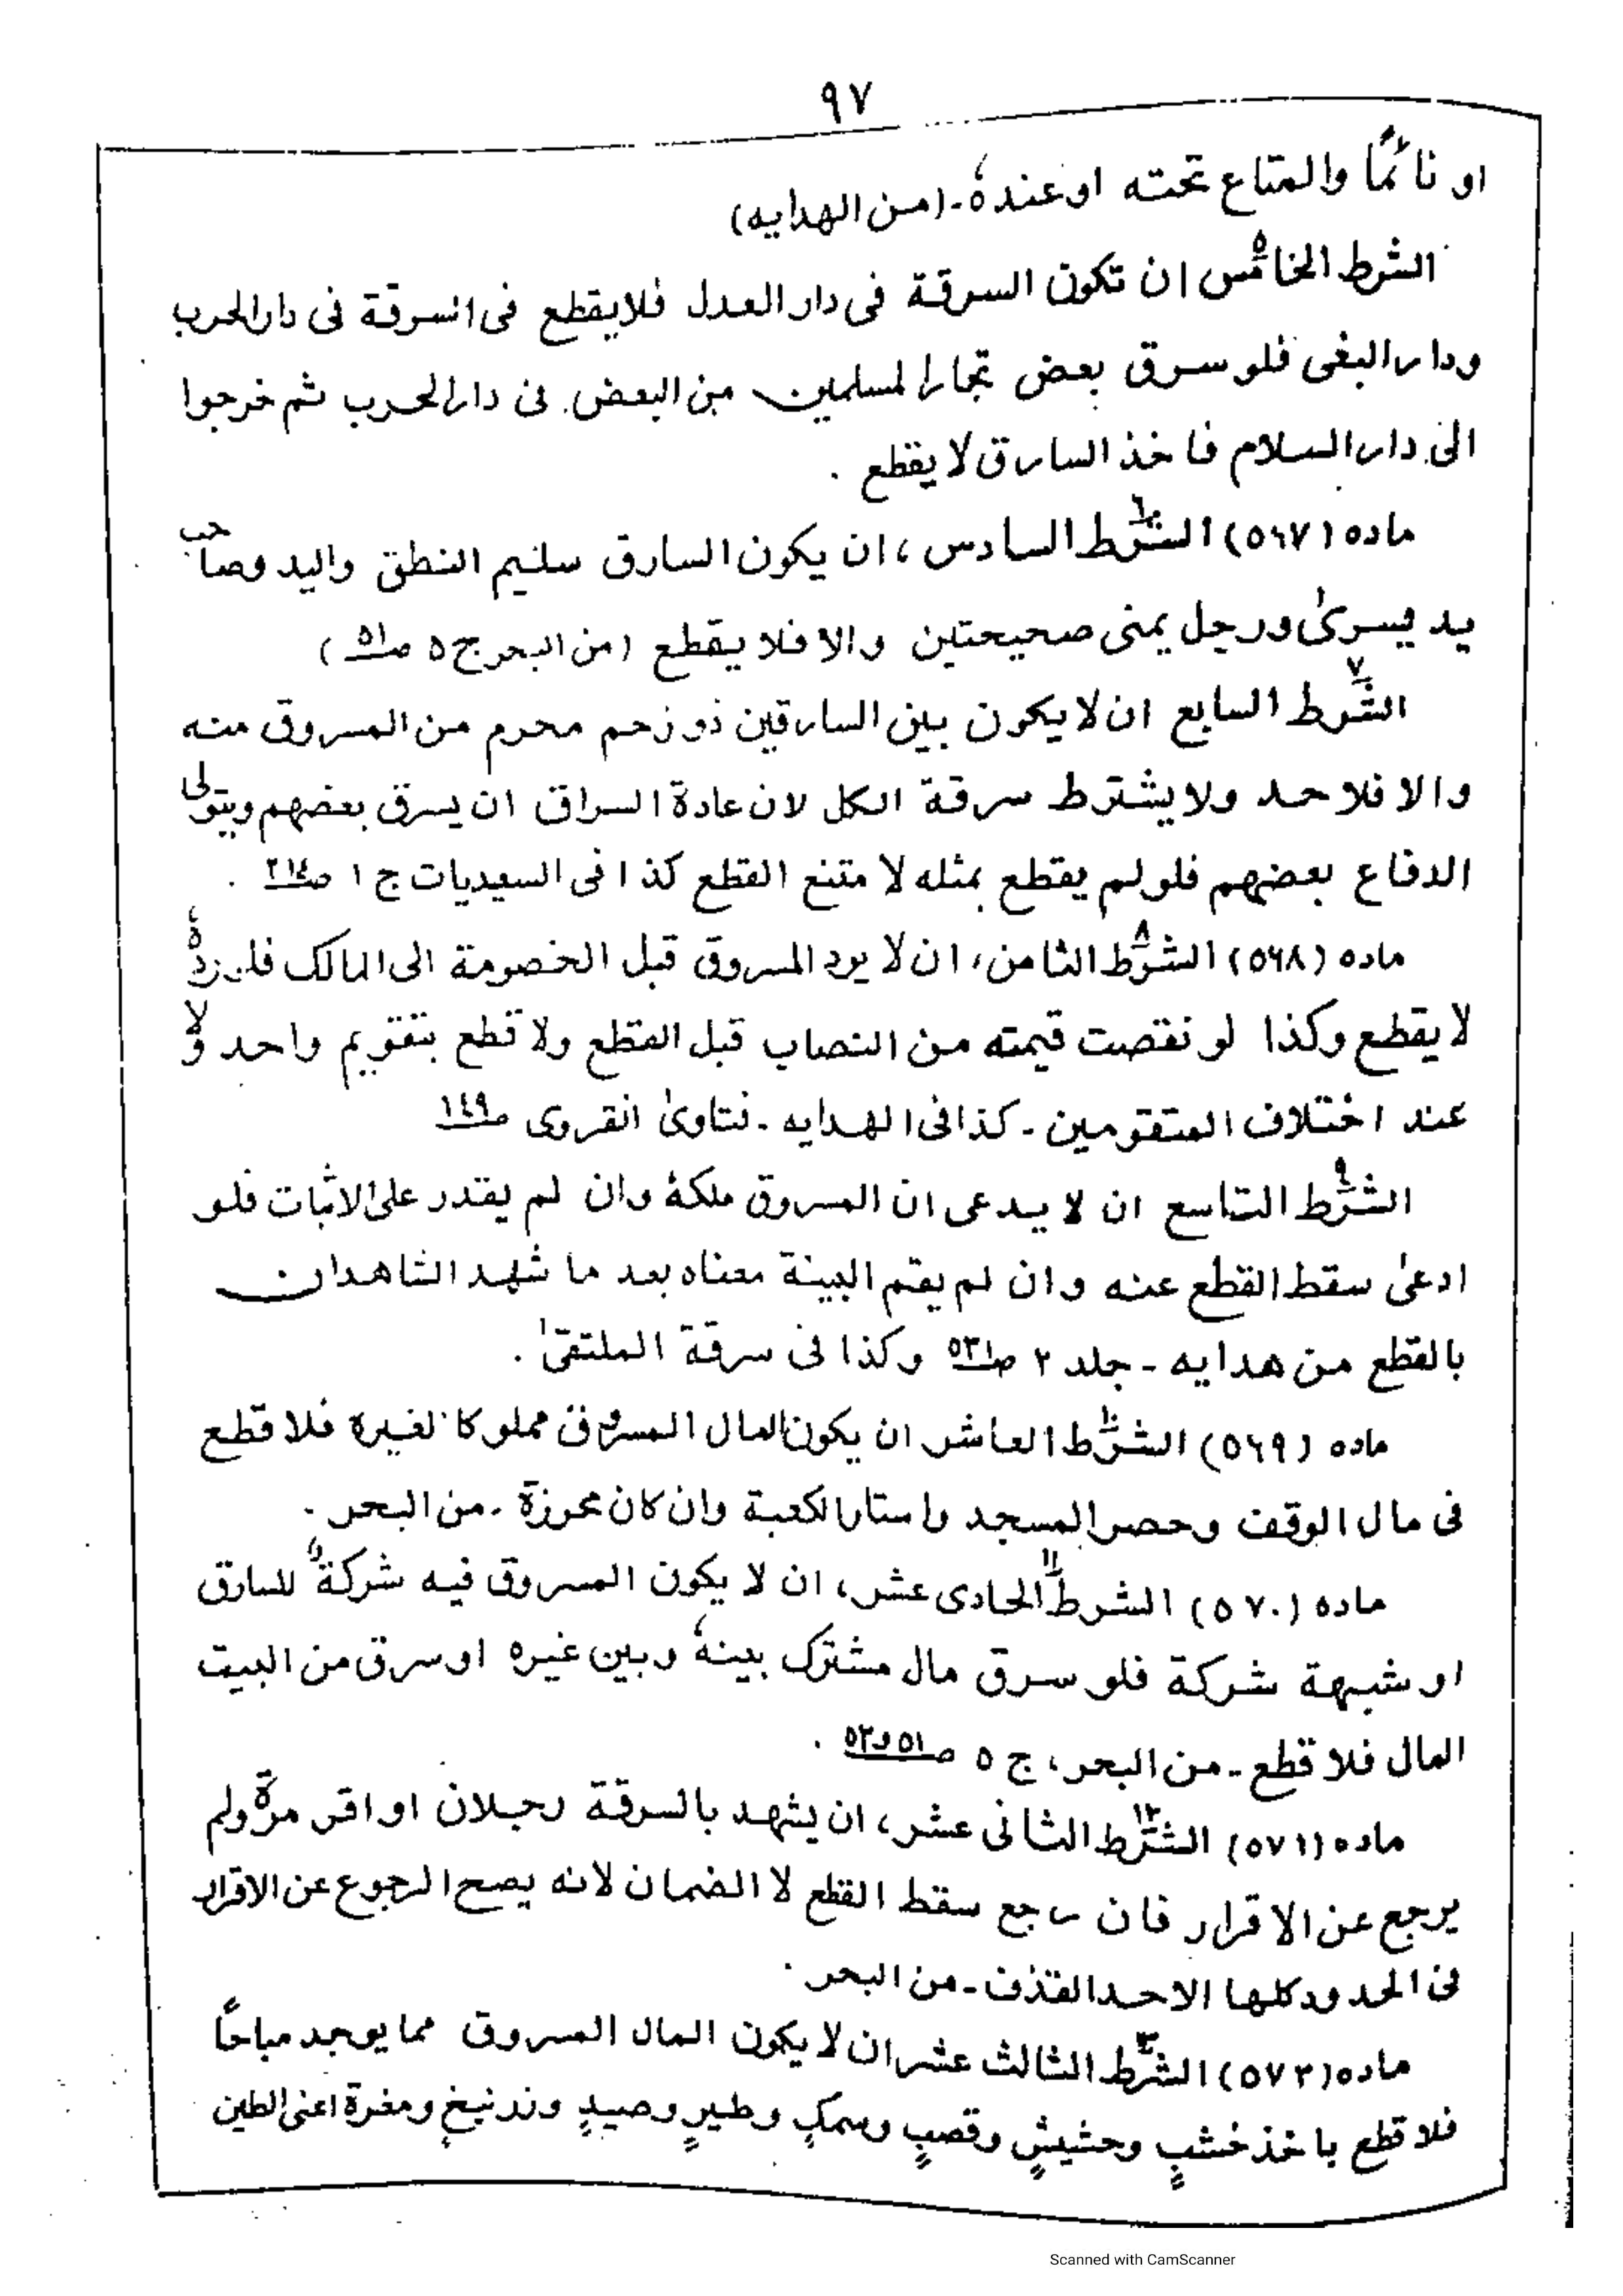 ٩٧
او نائمًا والمتاع تحته او عندهٗ ـ (من الهدايه)
الشرط الخامس ان تكون السرقة فى دار العدل فلا يقطع فى السرقة فى دار الحرب
ودار البغى فلو سرق بعض تجار المسلمين من البعض فى دار الحرب ثم خرجوا
الى دار السلام فاخذ السارق لا يقطع .
ماده (٥٦٧) الشرط السادس ، ان يكون السارق سليم النطق واليد وصاحب
يد يسرىٰ ورجل يمنى صحيحتين والا فلا يقطع (من البحر ج ٥ صـ٥١)
الشرط السابع ان لا يكون بين السارقين ذو زحم محرم من المسروق منه
والا فلا حد ولا يشترط سرقة الكل لان عادة السراق ان يسرق بعضهم ويتولى
الدفاع بعضهم فلو لم يقطع بمثله لا متنع القطع كذا فى السعيديات ج ١ صـ٢١٤ .
ماده (٥٦٨) الشرط الثامن ، ان لا يرد المسروق قبل الخصومة الى المالک فلو ردهٗ
لا يقطع وكذا لو نقصت قيمته من النصاب قبل القطع ولا قطع بتقويم واحد ولا
عند اختلاف المتقومين ـ كذا فى الهدايه ـ فتاوىٰ انقروى صـ١٤٩
الشرط التاسع ان لا يدعى ان المسروق ملكهٗ وان لم يقدر على الاثبات فلو
ادعىٰ سقط القطع عنه وان لم يقم البينة معناه بعد ما شهد الشاهدان
بالقطع من هدايه ـ جلد ٢ صـ٥٣١ وكذا فى سرقة الملتقىٰ .
ماده (٥٦٩) الشرط العاشر ان يكون المال المسروق مملوكا لغيره فلا قطع
فى مال الوقف وحصر المسجد واستار الكعبة وان كان محرزة ـ من البحر .
ماده (٥٧٠) الشرط الحادى عشر ، ان لا يكون المسروق فيه شركة للسارق
او شبهة شركة فلو سرق مال مشترک بينهٗ وبين غيره او سرق من البيت
المال فلا قطع ـ من البحر ، ج ٥ صـ٥١ و٥٢ .
ماده (٥٧١) الشرط الثانى عشر ، ان يشهد بالسرقة رجلان او اقر مرة ولم
يرجع عن الاقرار فان رجع سقط القطع لا الضمان لانه يصح الرجوع عن الاقرار
فى الحدود كلها الا حد القذف ـ من البحر .
ماده (٥٧٢) الشرط الثالث عشر ان لا يكون المال المسروق مما يوجد مباحًا
فلا قطع باخذ خشبٍ وحشيشٍ وقصبٍ وسمکٍ وطيرٍ وصيدٍ وزرنيخٍ ومغرة اعنى الطين
Scanned with CamScanner